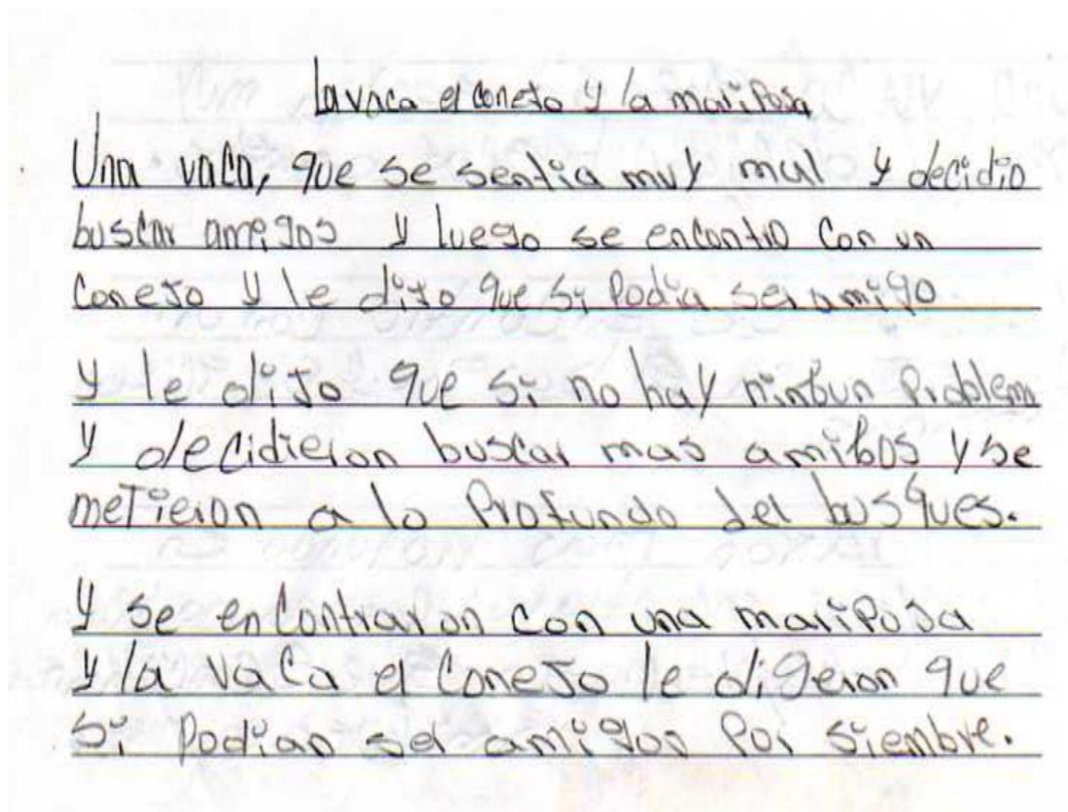 La vaca el conejo y la mariposa
Una vaca, que se sentia muy mal y decidio
buscar amigos y luego se encontro con un
conejo y le dijo que si podia ser amigo
y le dijo que si no hay ninbun problema
y decidieron buscar mas amibos y se
metieron a lo profundo del busques.
y se encontraron con una mariposa
y la vaca el conejo le digeron que
si podian ser amigos por siembre.